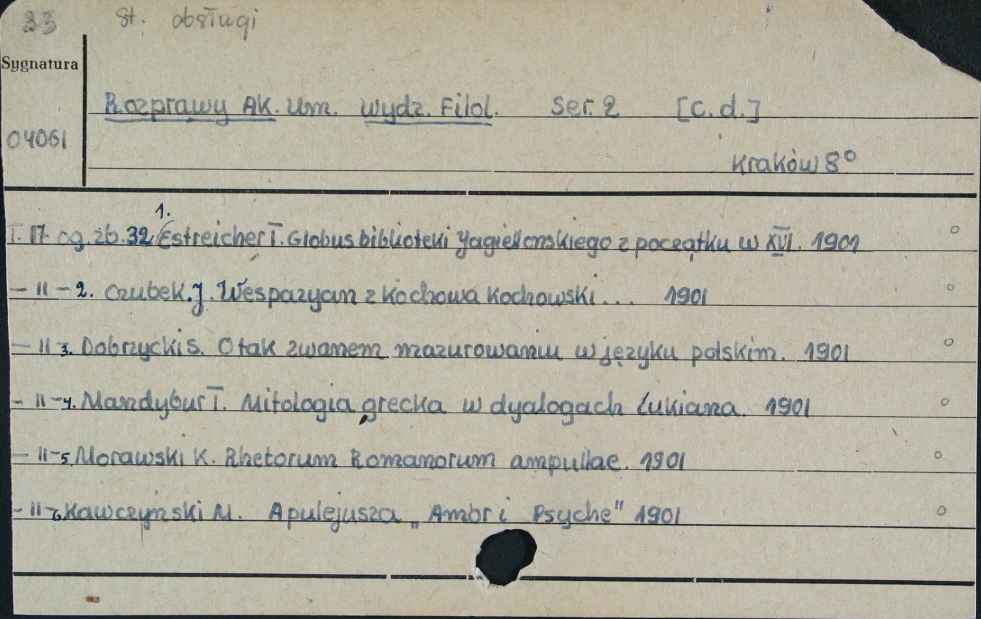 33 St. obsługi
Sygnatura
Rozprawy Ak. Um. wydz. Filol. Ser. 2 [c.d.]
04061
Kraków 8°
T. 17 og. zb. 32 1. Estreicher T. Globus biblioteki Jagiellonskiego z początku w XVI. 1901
— 11 — 2. Czubek J. Wespazyan z Kochowa Kochowski... 1901
— 11 3. Dobrzycki S. O tak zwanem mazurowaniu w języku polskim. 1901
— 11 — 4. Mandybur T. Mitologia grecka w dyalogach Lukiana. 1901
— 11 — 5. Morawski K. Rhetorum Romanorum ampullae. 1901
— 11 6 Kawczyński M. Apulejusza „Ambr i Psyche" 1901